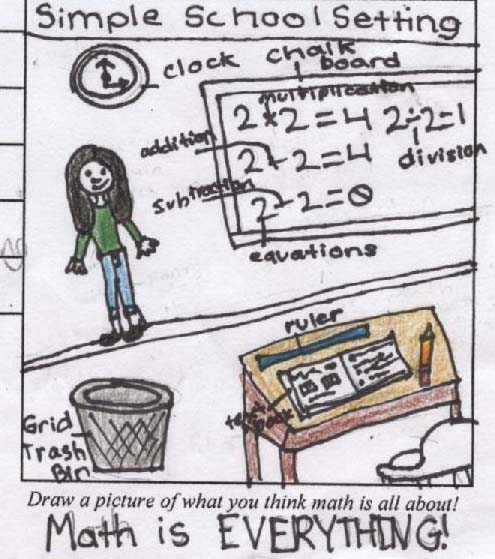 Simple School Setting
clock
chalk
board
multiplication
2×2=4 2÷2=1
addition
2+2=4
division
subtraction
2-2=0
equations
ruler
text book
Grid
Trash
Bin
Draw a picture of what you think math is all about!
Math is EVERYTHING!